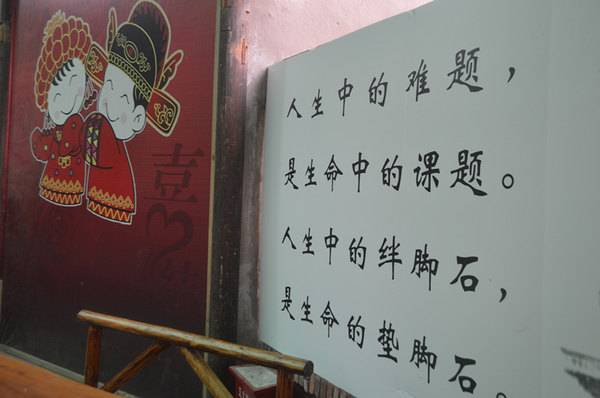 喜
人生中的难题，
是生命中的课题。
人生中的绊脚石，
是生命的垫脚石。